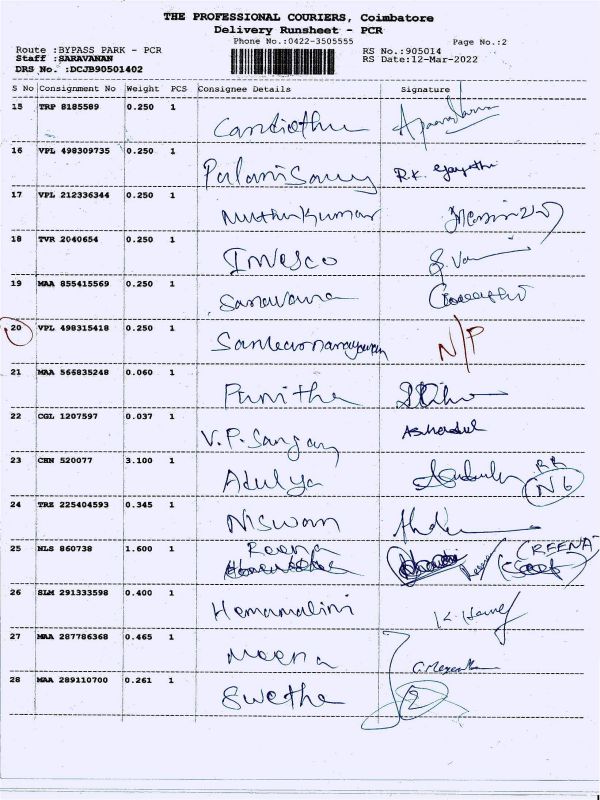 THE PROFESSIONAL COURIERS, Coimbatore
Delivery Runsheet - PCR
Phone No.:0422-3505555 Page No.:2
Route :BYPASS PARK - PCR RS No.:905014
Staff :SARAVANAN RS Date:12-Mar-2022
DRS No. :DCJB90501402
S No Consignment No Weight PCS Consignee Details Signature
15 TRP 8185589 0.250 1
16 VPL 498309735 0.250 1 PalaniSamy R.K.
17 VPL 212336344 0.250 1 Muthukumar
18 TVR 2040654 0.250 1 Invesco
19 MAA 855415569 0.250 1 Saravana
20 VPL 498315418 0.250 1 N/P
21 MAA 566835248 0.060 1 Punitha
22 CGL 1207597 0.037 1 V.P. Sangay
23 CHN 520077 3.100 1 Atulya RR N6
24 TRZ 225404593 0.345 1 Niswan
25 NLS 860738 1.600 1 Reena (REENA)
26 SLM 291333598 0.400 1 Hemamalini
27 MAA 287786368 0.465 1 Meena
28 MAA 289110700 0.261 1 Swetha 2